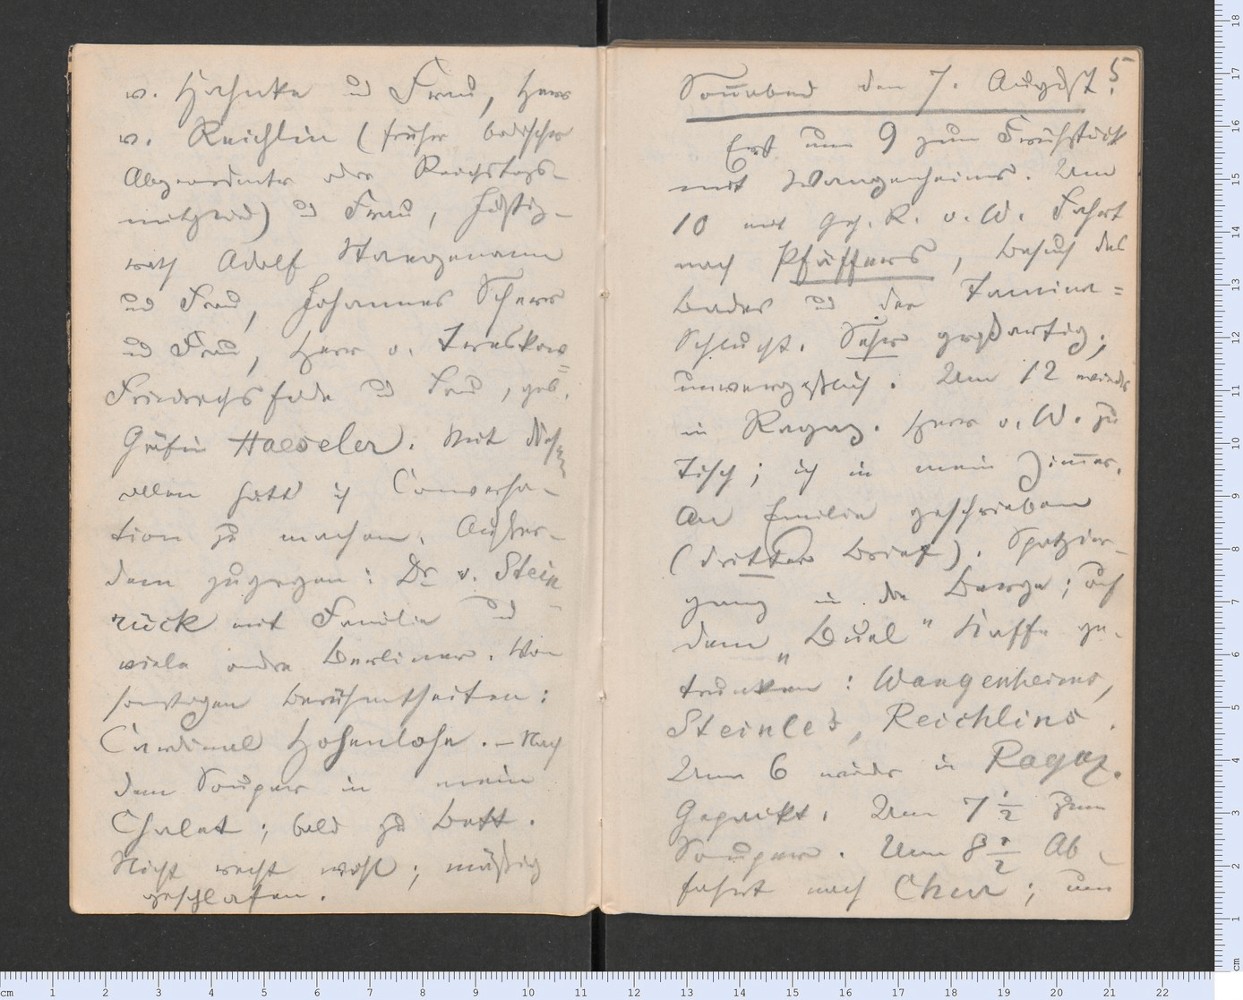 v. Hahnke und Frau, Herr
v. Reichlin (früher badischer
Abgeordneter oder Reichstags-
mitglied) und Frau, Justiz-
rath Adolf Stangemann
und Frau, Johannes Scherr
und Frau, Herr v. Treskow-
Friedrichsfelde und Frau, geb.
Gräfin Haeseler. Mit diesen
allen hatt' ich Conversa-
tion zu machen. Außer-
dem zugegen: Dr. v. Stein-
rück mit Familie und
viele andre Berliner. Von
sonstigen Berühmtheiten:
Cardinal Hohenlohe. – Nach
dem Souper in mein
Chalet; bald zu Bett.
Nicht recht wohl; mäßig
geschlafen.
5
Sonnabend den 7. August.
Erst um 9 zum Frühstück
mit Wangenheims. Um
10 mit Geh. R. v. W. Fahrt
nach Pfäffers, Besuch des
Bades und der Tamina=
Schlucht. Sehr großartig;
unvergeßlich. Um 12 wieder
in Ragaz. Herr v. W. zu
Tisch; ich in mein Zimmer.
An Emilie geschrieben
(dritter Brief). Spazier-
gang in die Berge; auf
dem „Buel" Kaffe ge-
trunken: Wangenheims,
Steinles, Reichlins.
Um 6 wieder in Ragaz.
Gepackt. Um 7 1/2 zum
Souper. Um 8 1/2 Ab-
fahrt nach Chur; um